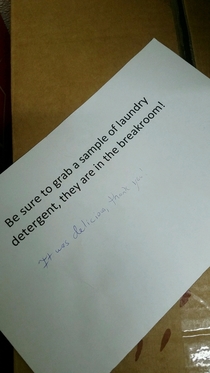 Be sure to grab a sample of laundry
detergent, they are in the breakroom!
It was delicious, thank you